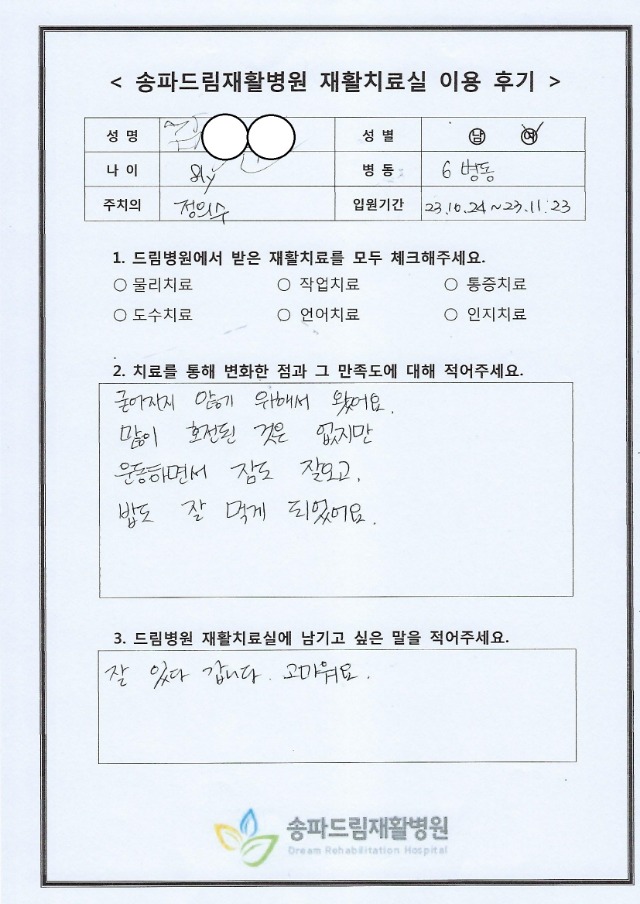 < 송파드림재활병원 재활치료실 이용 후기 >
성 명 성 별 남 여
나 이 81y 병 동 6 병동
주치의 정의수 입원기간 23.10.24~23.11.23
1. 드림병원에서 받은 재활치료를 모두 체크해주세요.
○ 물리치료 ○ 작업치료 ○ 통증치료
○ 도수치료 ○ 언어치료 ○ 인지치료
2. 치료를 통해 변화한 점과 그 만족도에 대해 적어주세요.
굳어지지 않기 위해서 왔어요.
많이 호전된 것은 없지만
운동하면서 잠도 잘오고,
밥도 잘 먹게 되었어요.
3. 드림병원 재활치료실에 남기고 싶은 말을 적어주세요.
잘 있다 갑니다. 고마워요.
송파드림재활병원
Dream Rehabilitation Hospital